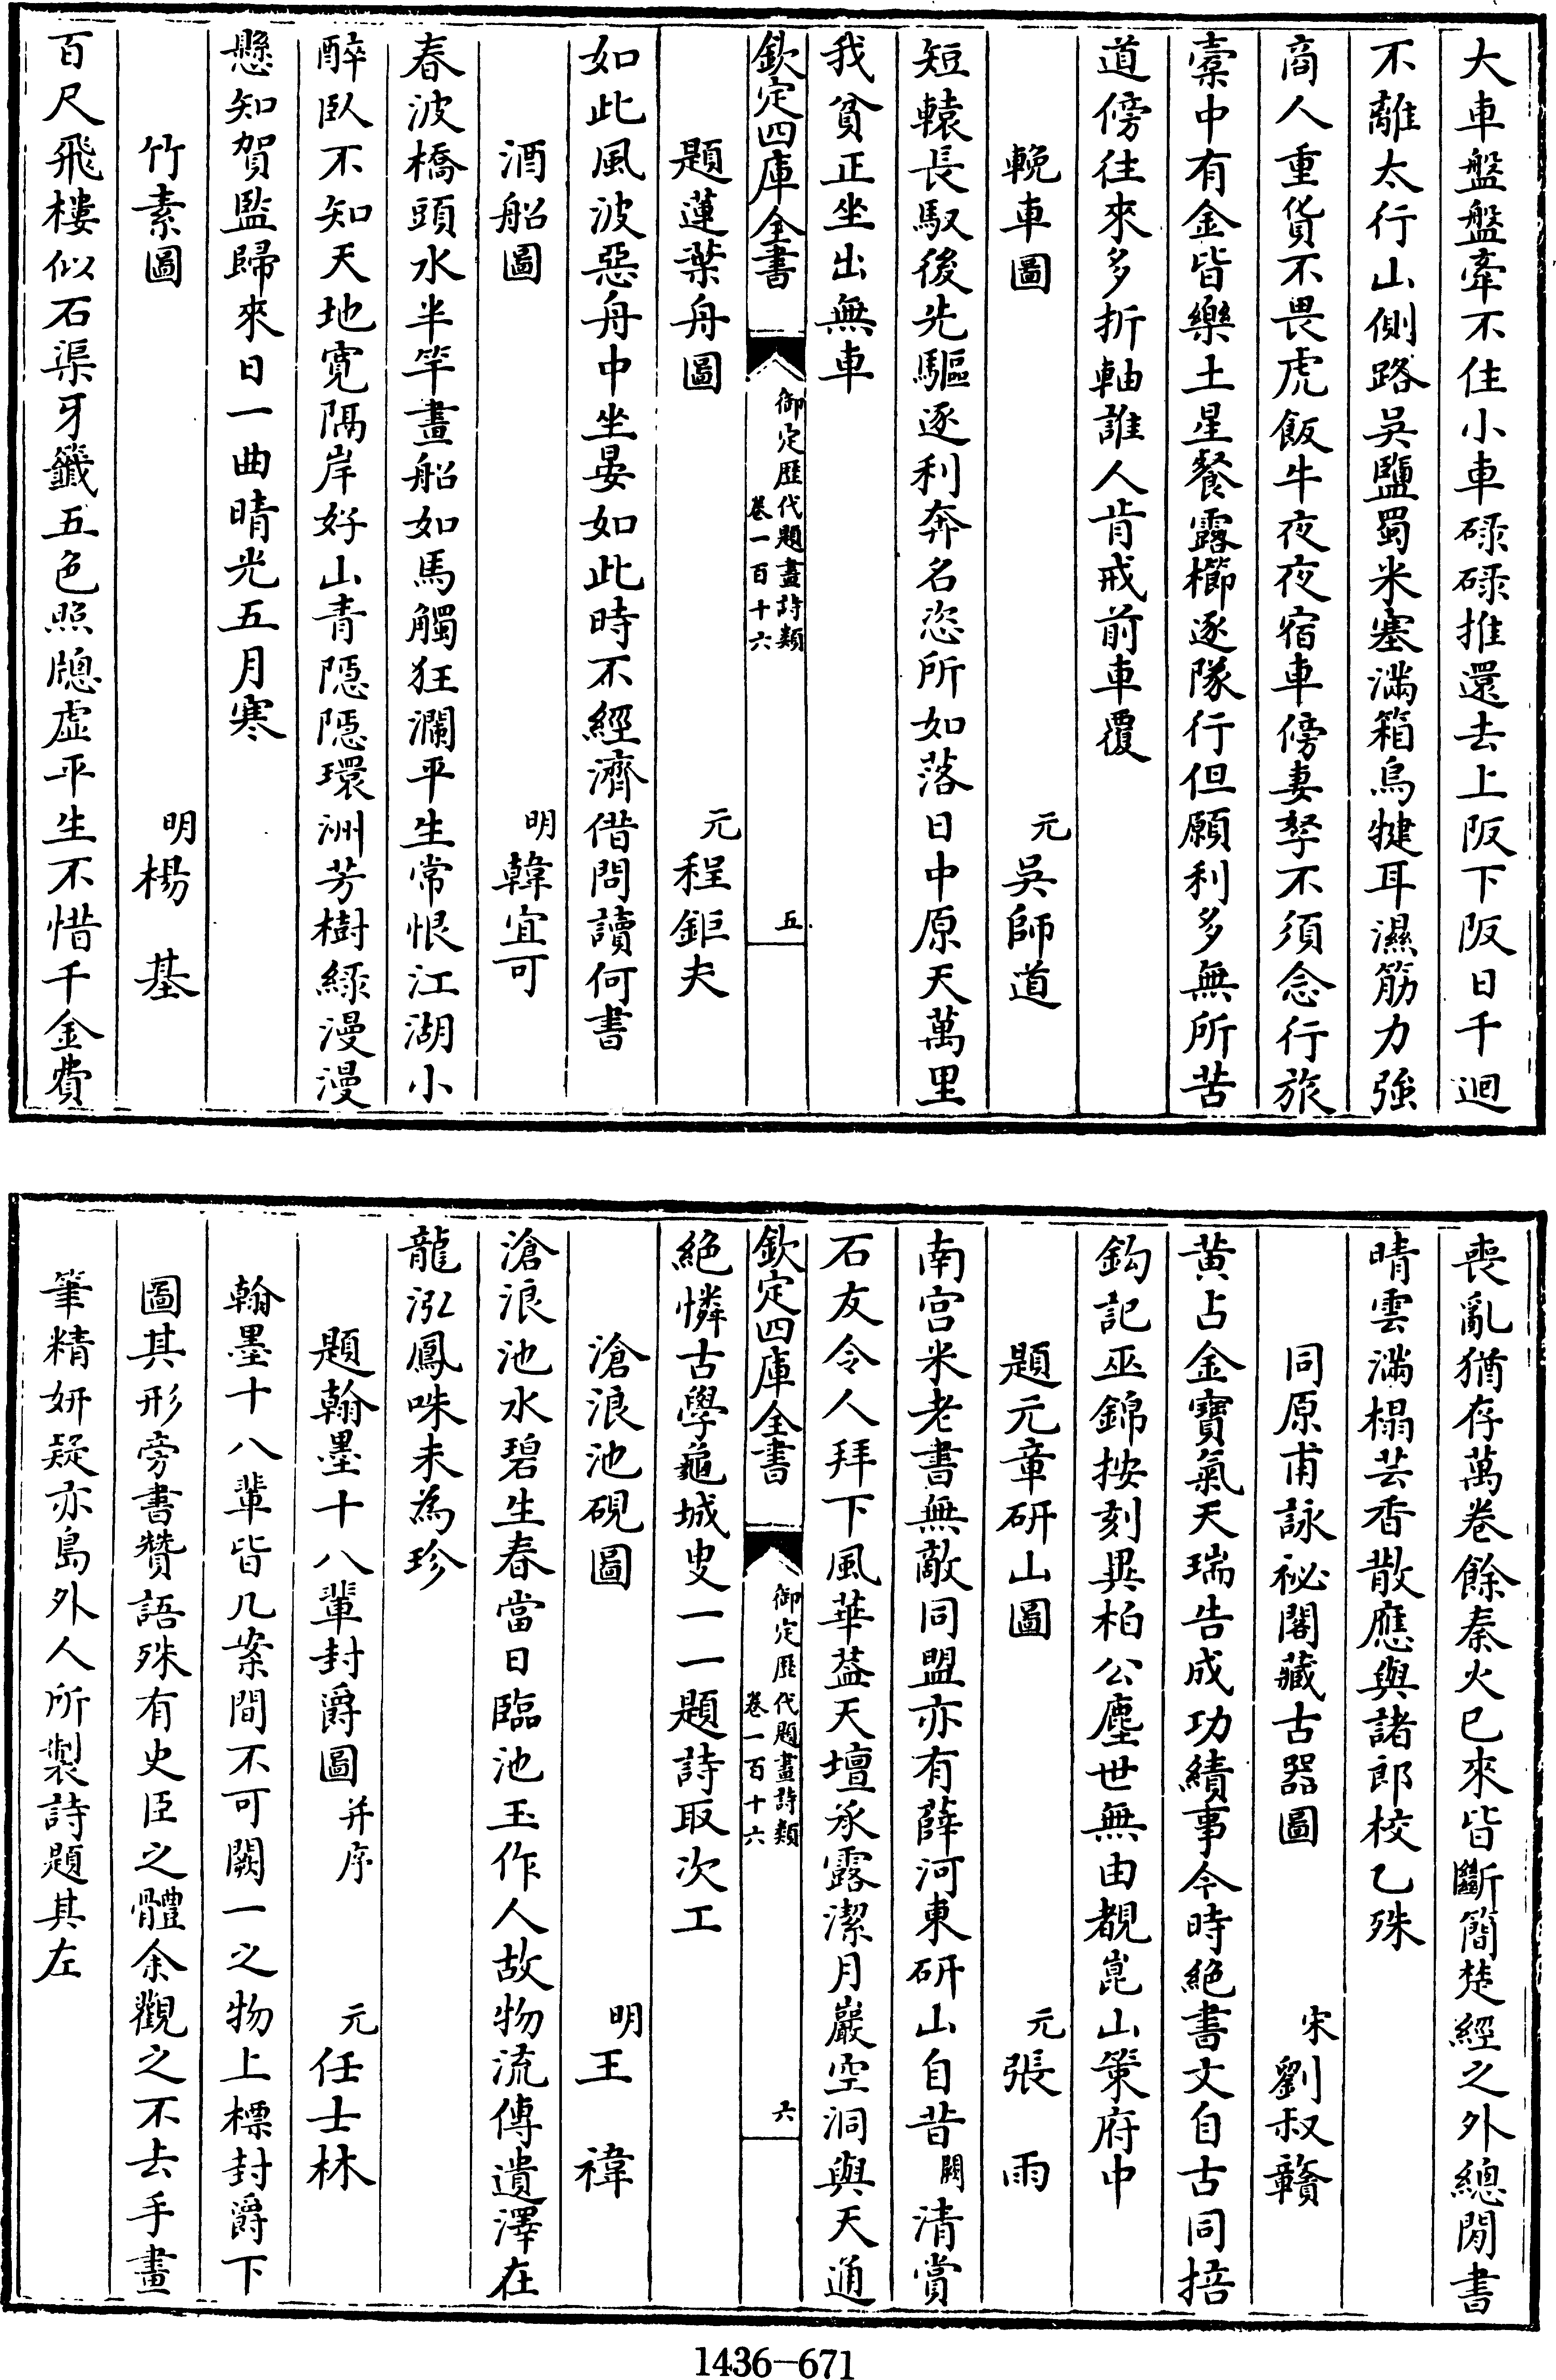 大車盤盤牽不住小車碌碌推還去上阪下阪日千迴
不離太行山側路吳鹽蜀米塞滿箱烏犍耳濕筋力強
商人重貨不畏虎飯牛夜夜宿車傍妻孥不須念行旅
槖中有金皆樂土星餐露櫛逐隊行但願利多無所苦
道傍往來多折軸誰人肯戒前車覆
輓車圖 元吳師道
短轅長馭後先驅逐利奔名恣所如落日中原天萬里
我貧正坐出無車
欽定四庫全書 御定歷代題畫詩類 卷一百十六 五
題蓮葉舟圖 元程鉅夫
如此風波惡舟中坐晏如此時不經濟借問讀何書
酒船圖 明韓宜可
春波橋頭水半竿畫船如馬觸狂瀾平生常恨江湖小
醉臥不知天地寬隔岸好山青隱隱環洲芳樹綠漫漫
懸知賀監歸來日一曲晴光五月寒
竹素圖 明楊基
百尺飛樓似石渠牙籤五色照牕虛平生不惜千金費
喪亂猶存萬卷餘秦火已來皆斷簡楚經之外總閒書
晴雲滿榻芸香散應與諸郎校乙殊
同原甫詠祕閣藏古器圖 宋劉叔贛
黃占金寶氣天瑞告成功績事今時絕書文自古同掊
鈎記巫錦按刻異柏公塵世無由覩崑山策府中
題元章硏山圖 元張雨
南宮米老書無敵同盟亦有薛河東硏山自昔闕清賞
石友令人拜下風華葢天壇承露潔月巖空洞與天通
欽定四庫全書 御定歷代題畫詩類 卷一百十六 六
絕憐古學龜城叟一一題詩取次工
滄浪池硯圖 明王禕
滄浪池水碧生春當日臨池玉作人故物流傳遺澤在
龍泓鳳咮未為珍
題翰墨十八輩封爵圖并序 元任士林
翰墨十八輩皆几案間不可闕一之物上標封爵下
圖其形旁書贊語殊有史臣之體余觀之不去手畫
筆精妍疑亦島外人所製詩題其左
1436-671